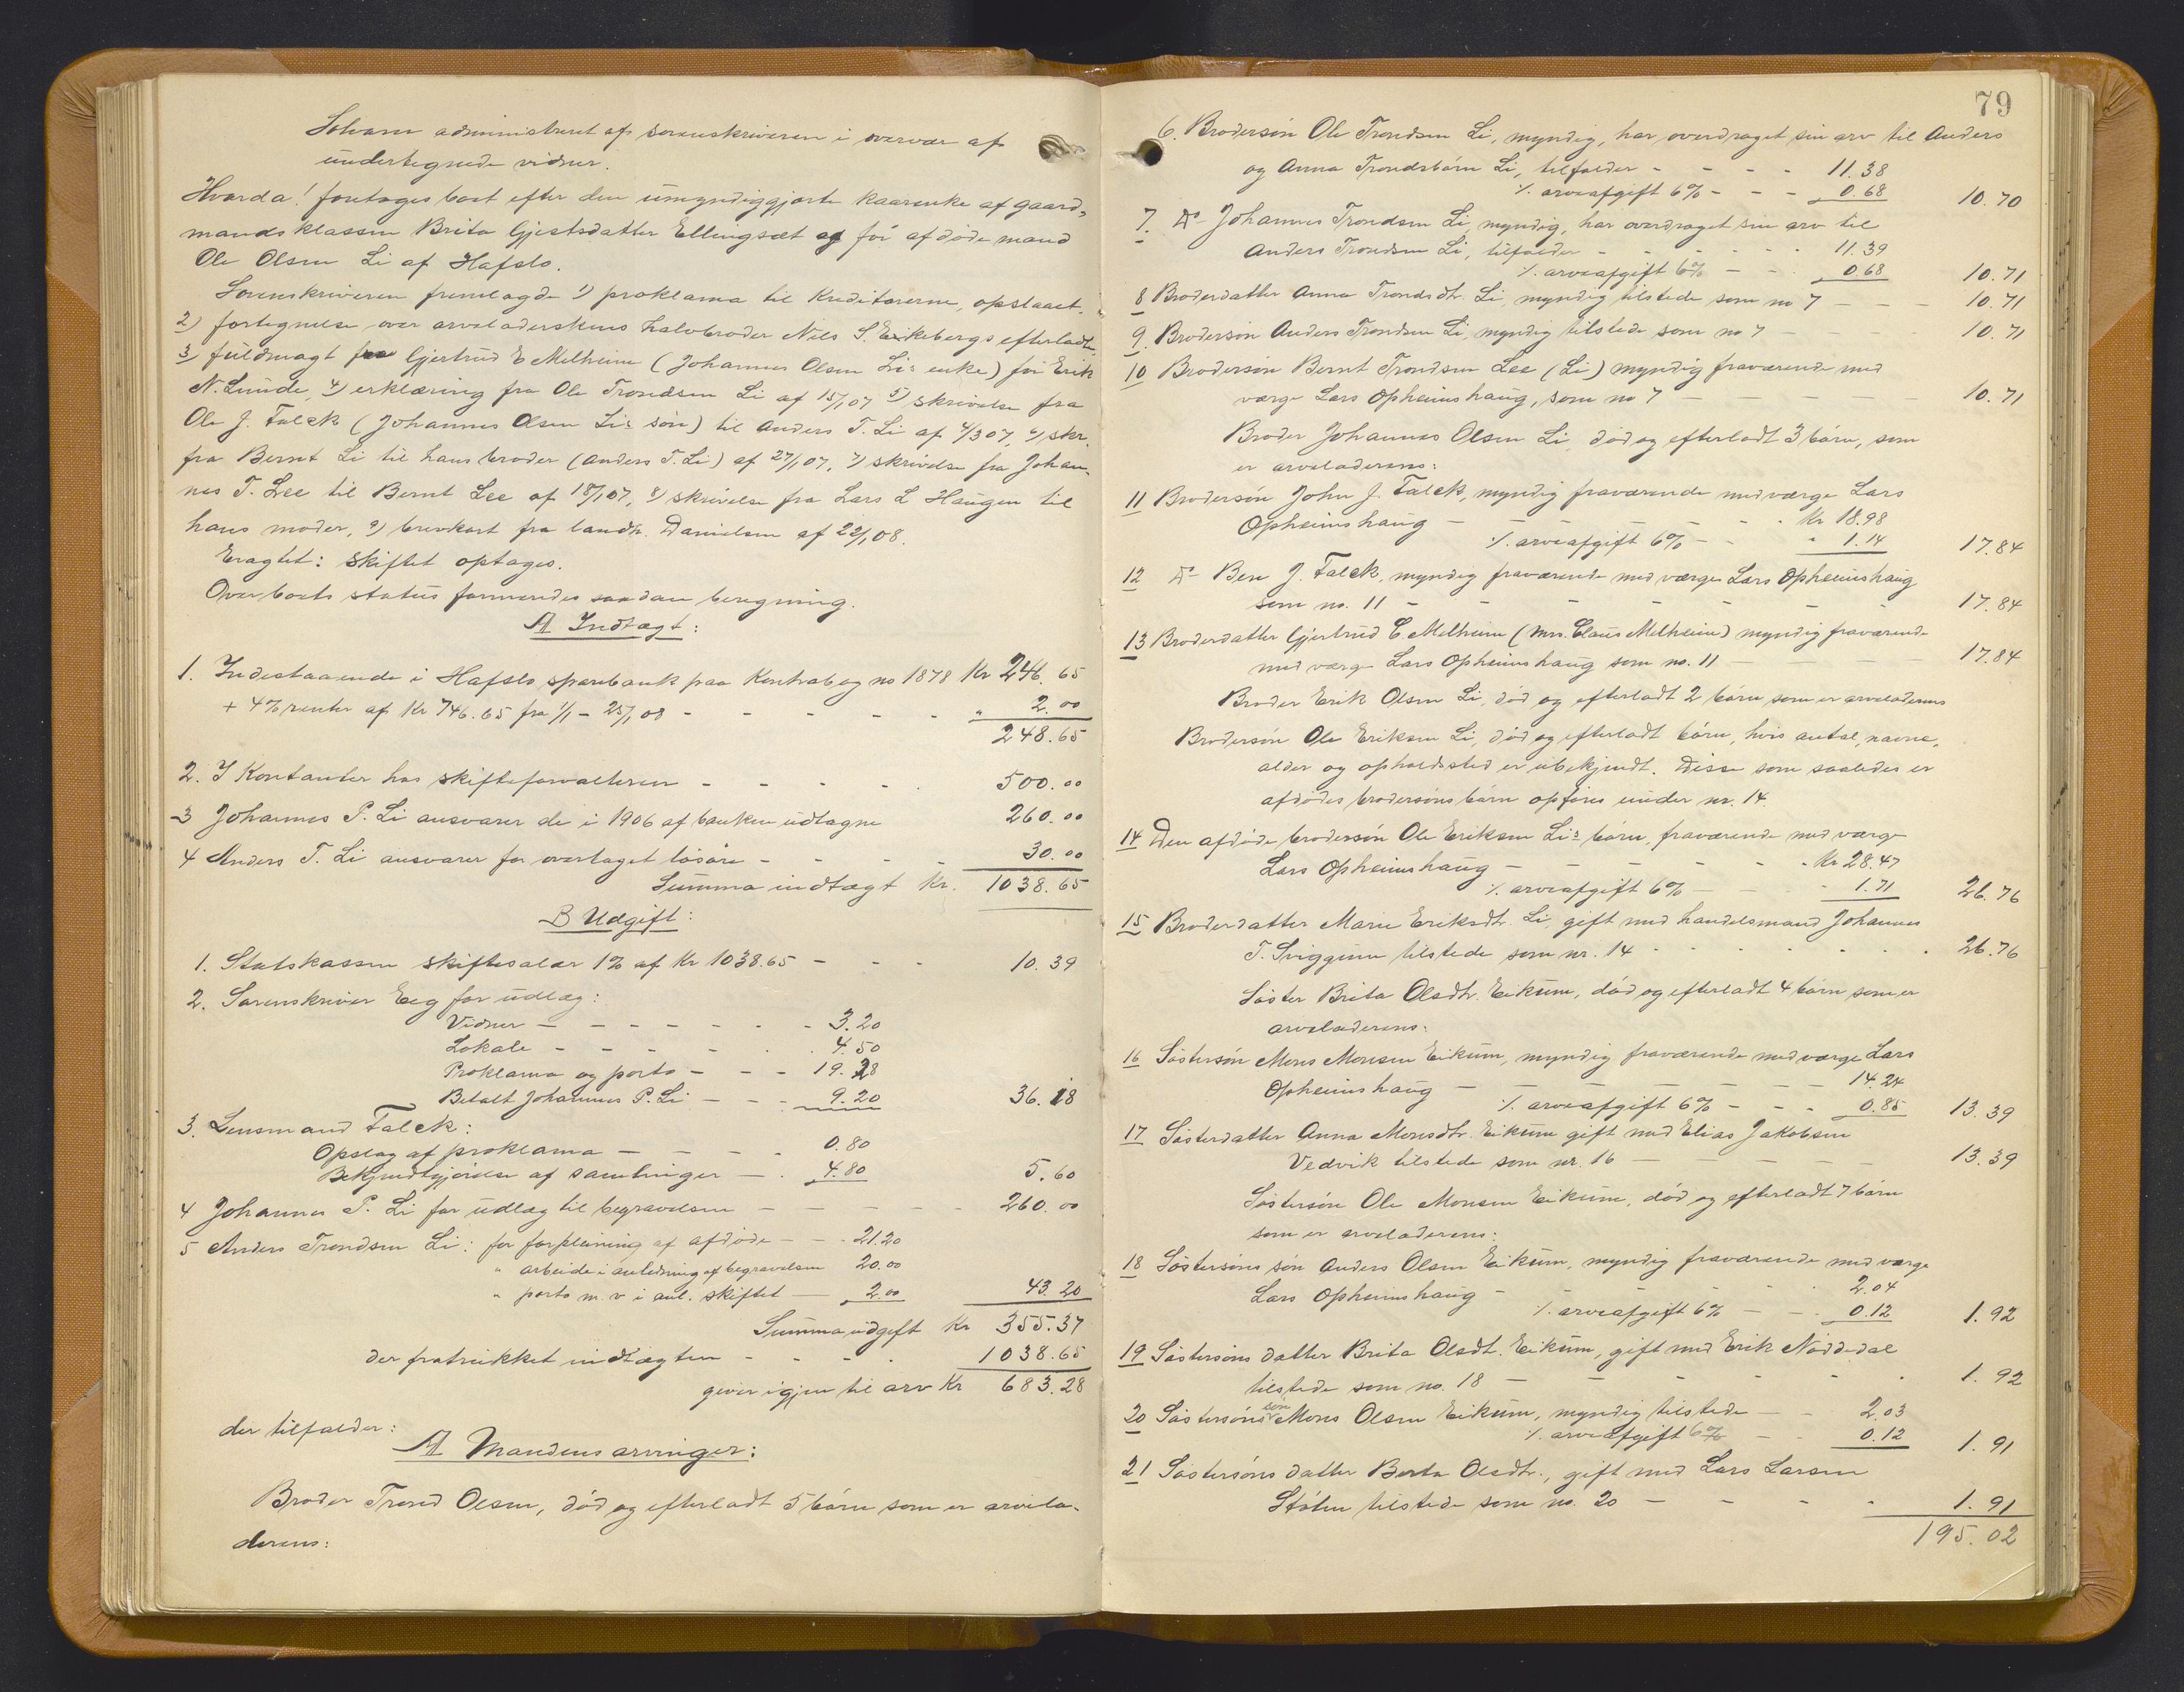 Solvorn administreret af sorenskriveren i overvær af
undertegnede vidner.
Hvorda! foretoges boet efter den umyndiggjorte kaarenke af gaard-
mandsklassen Brita Gjestsdatter Ellingsæt og før afdøde mand
Ole Olsen Li af Hafslo.
Sorenskriveren fremlagde 1) proklama til kreditorerne, opslaaet.
2) fortegnelse over arveladerskens halvbroder Nils S. Eikebergs efterladte,
3) fuldmagt fra Gjertrud E Melheim (Johannes Olsen Lis enke) for Erik
N. Lunde, 4) erklæring fra Ole Trondsen Li af 15/1 07 5) skrivelse fra
Ole J. Falck (Johannes Olsen Lis søn) til Anders T. Li af 4/3 07, 6) skr.
fra Bernt Li til hans broder (Anders T. Li) af 27/1 07, 7) skrivelse fra Johan-
nes T. Lee til Bernt Lee af 18/1 07, 8) skrivelse fra Lars L Haugen til
hans moder, 9) brevkort fra landh. Danielsen af 22/1 08.
Eragtet: skiftet optages.
Over boets status formeredes saadan beregning.
A Indtægt:
1. Indestaaende i Hafslo sparebank paa Kontrabog no 1878 Kr 246.65
+ 4% renter af Kr 746.65 fra 1/1 - 25/1 08 - - - - - " 2.00
248.65
2. I Kontanter hos skifteforvalteren - - - - 500.00
3 Johannes P. Li ansvarer de i 1906 af banken udtagne 260.00
4 Anders T. Li ansvarer for overtaget løsøre - - - - 30.00
Summa indtægt Kr. 1038.65
B Udgift:
1. Statskassen skiftesalær 1% af Kr 1038.65 - - - 10.39
2. Sorenskriver Eeg for udlæg:
Vidner - - - - - - - 3.20
Lokale - - - - - - 4.50
Proklama og porto - - - 19.28
Betalt Johannes P. Li - - - 9.20 36.18
3. Lensmand Falck:
Opslag af proklama - - - - 0.80
Bekjendtgjørelse af samlinger - . 4.80 5.60
4 Johannes P. Li for udlæg til begravelsen - - - - - 260.00
5 Anders Trondsen Li: for forpleining af afdøde - - - 21.20
" arbeide i anledning af begravelsen 20.00
" porto m. v i anl. skiftet - 2.00 43.20
Summa udgift Kr 355.37
der fratrukket indtægten - - - - 1038.65
giver igjen til arv Kr 683.28
der tilfalder:
A Mandens arvinger:
Broder Trond Olsen, død og efterladt 5 børn som er arvela-
derens:
79
6. Brodersøn Ole Trondsen Li, myndig, har overdraget sin arv til Anders
og Anna Trondsbørn Li, tilfalder - - - - 11.38
% arveafgift 6% - - - 0.68 10.70
7. Do Johannes Trondsen Li, myndig, har overdraget sin arv til
Anders Trondsen Li, tilfalder - - - - - 11.39
% arveafgift 6% - - . 0.68 10.71
8 Broderdatter Anna Trondsdtr. Li, myndig tilstede som no 7 - - - 10.71
9. Brodersøn Anders Trondsen Li, myndig tilstede som no 7 - - - 10.71
10 Brodersøn Bernt Trondsen Lee (Li) myndig fraværende med
værge Lars Opheimshaug, som no 7 - - - - 10.71
Broder Johannes Olsen Li, død og efterladt 3 børn, som
er arveladerens:
11 Brodersøn John J. Falck, myndig fraværende med værge Lars
Opheimshaug - - - - - - - Kr 18.98
% arveafgift 6% - - " 1.14 17.84
12 Do Ben J. Falck, myndig fraværende med værge Lars Opheimshaug
som no. 11 - - - - - - - 17.84
13 Broderdatter Gjertrud C. Melheim (mrs. Claus Melheim) myndig fraværende
med værge Lars Opheimshaug som no. 11 - - - - 17.84
Broder Erik Olsen Li, død og efterladt 2 børn som er arveladerens
Brodersøn Ole Eriksen Li, død og efterladt børn, hvis antal, navne,
alder og opholdssted er ubekjendt. Disse som saaledes er
afdødes brodersøns børn opføres under nr. 14.
14 Den afdøde brodersøn Ole Eriksen Lis børn, fraværende med værge
Lars Opheimshaug - - - - - - - Kr 28.47
% arveafgift 6% - - - 1.71 26.76
15 Broderdatter Marie Eriksdtr. Li, gift med handelsmand Johannes
T. Sviggum tilstede som nr. 14 - - - - - - 26.76
Søster Brita Olsdtr. Eikum, død og efterladt 4 børn som er
arveladerens:
16 Søstersøn Mons Monsen Eikum, myndig fraværende med værge Lars
Opheimshaug - - - - - - - 14.24
% arveafgift 6% - - - 0.85 13.39
17 Søsterdatter Anna Monsdtr. Eikum gift med Elias Jakobsen
Vedvik tilstede som nr. 16 - - - - - 13.39
Søstersøn Ole Monsen Eikum, død og efterladt 7 børn
som er arveladerens:
18 Søstersøns søn Anders Olsen Eikum, myndig fraværende med værge
Lars Opheimshaug - - - - - - 2.04
% arveafgift 6% - - . 0.12 1.92
19 Søstersøns datter Brita Olsdt. Eikum, gift med Erik Nøddedal
tilstede som no. 18 - - - - - - 1.92
20 Søstersøns søn Mons Olsen Eikum, myndig tilstede - - 2.03
% arveafgift 6% - - 0.12 1.91
21 Søstersøns datter Berta Olsdtr., gift med Lars Larsen
Stølen tilstede som no. 20 - - - - 1.91
195.02